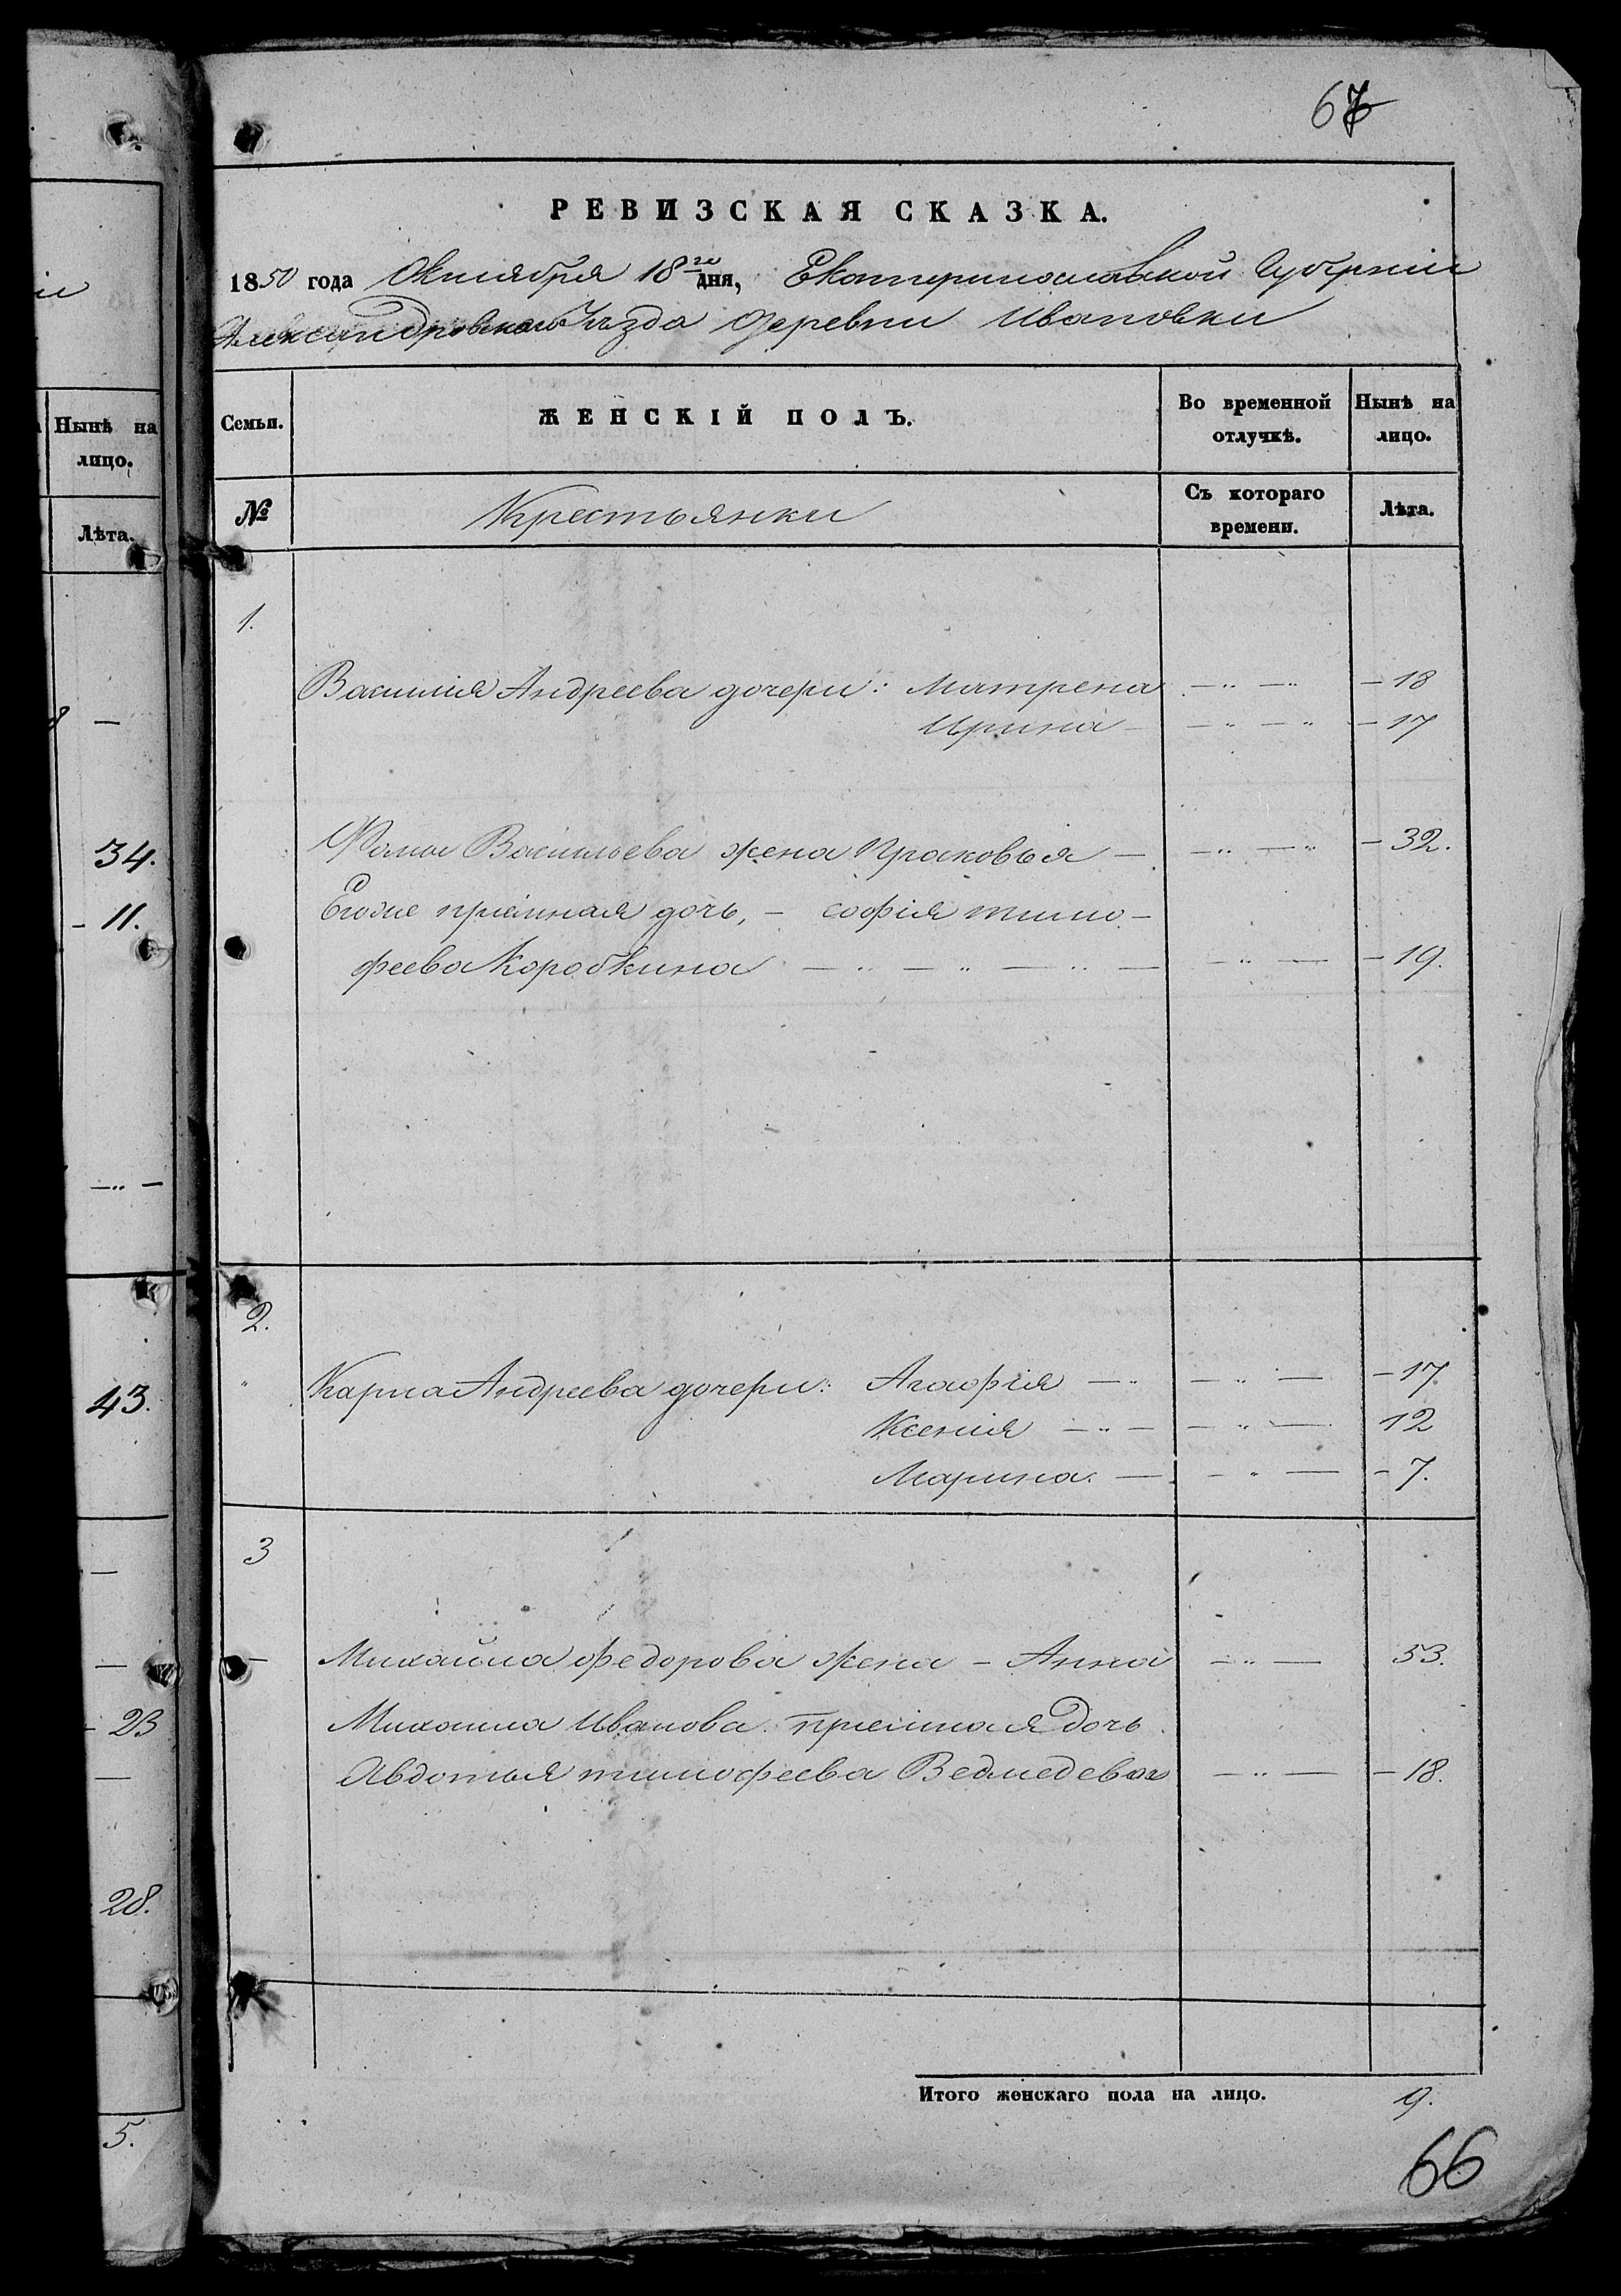 67
РЕВИЗСКАЯ СКАЗКА.
1850 года Октября 18го дня, Екатеринославской Губерніи
Александровскаго Уѣзда деревни Ивановки
Семьи. ЖЕНСКІЙ ПОЛЪ. Во временной отлучкѣ. Нынѣ на лицо.
№ Крестьянки Съ котораго времени. Лѣта.
1.
Василія Андреева дочери: Матрена — 18
Ирина — 17
Фомы Васильева жена Прасковья — 32.
Егоже пріемная дочь, — софія тимо-
феева Коробкина — 19.
2.
Карпа Андреева дочери: Агафія — 17
Ксенія — 12
Марина — 7.
3
Михайла Федорова жена — Анна 53.
Михаила Иванова пріемная дочь
Авдотья тимофеева Ведмедева — 18.
Итого женскаго пола на лицо. 9.
66
Нынѣ на
лицо.
Лѣта.
34.
- 11.
43.
- 23
28.
5.